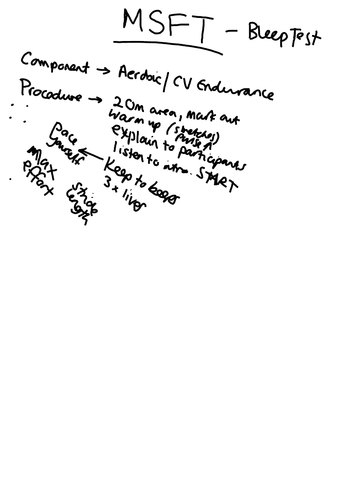 MSFT - Bleep Test
Component → Aerobic / CV Endurance
Procedure → 20m area, mark out
warm up (stretches)
pulse ↑
explain to participants
listen to intro. START
Keep to beeps
3 x lives
Pace yourself
Max effort
stride length